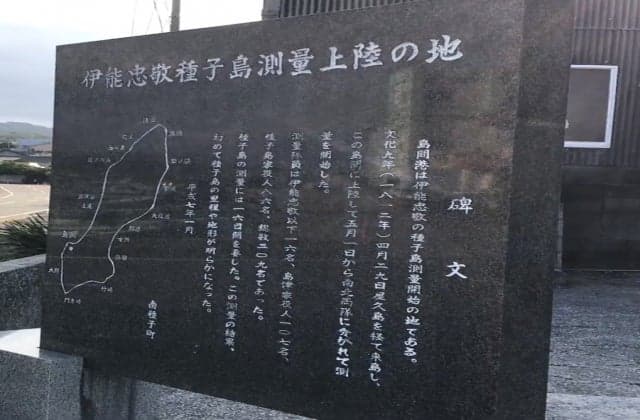 伊能忠敬種子島測量上陸の地
碑文
島間港は伊能忠敬の種子島測量開始の地である。
文化九年(一八一二年)四月二九日屋久島を経て来島し、
この島間に上陸して五月一日から南北両隊に分かれて測
量を開始した。
測量隊員は伊能忠敬以下一六名、島津家役人一〇七名、
種子島家役人八六名、総数二〇九名であった。
種子島の測量には一六日間を要した。この測量の結果、
初めて種子島の里程や地形が明らかになった。
平成七年一月
南種子町
島間